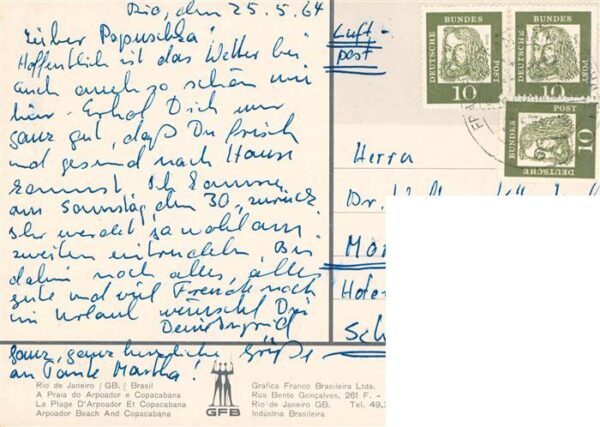 Rio, den 25.5.64
Lieber Papuschka!
Hoffentlich ist das Wetter bei
auch auch so schön wie
hier. Erhol Dich nur
ganz gut, daß Du frisch
und gesund nach Hause
kommst. Ich komme
am Samstag, den 30., zurück
Ihr werdet ja wohl am
zweiten eintrudeln. Bis
dahin noch alles, alles
gute und viel Freude noch
im Urlaub wünscht Dir
Deine Ingrid
ganz, ganz herzliche Grüße
an Tante Martha!
Luft-
post
Herrn
Dr.
Hofer
DEUTSCHE BUNDES POST
10
DEUTSCHE BUNDES POST
10
DEUTSCHE BUNDES POST
10
Rio de Janeiro / GB. / Brasil
A Praia do Arpoador e Copacabana
La Plage D'Arpoador Et Copacabana
Arpoador Beach And Copacabana
GFB
Gráfica Franco Brasileira Ltda.
Rua Bento Gonçalves, 261 F. -
Rio de Janeiro GB. Tel. 49.2
Indústria Brasileira